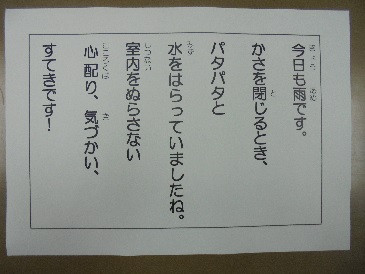 今日も雨です。
かさを閉じるとき、
パタパタと
水をはらっていましたね。
室内をぬらさない
心配り、気づかい、
すてきです！